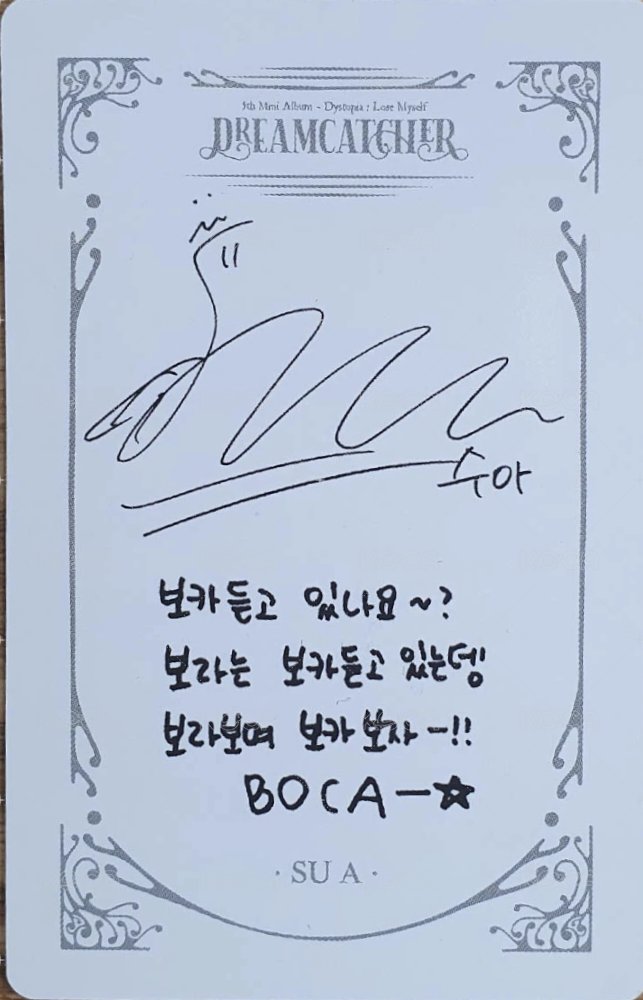 5th Mini Album - Dystopia : Lose Myself
DREAMCATCHER
수아
보카듣고 있나요~?
보라는 보카듣고 있는뎅
보라보며 보카 보자-!!
BOCA-☆
· SU A ·